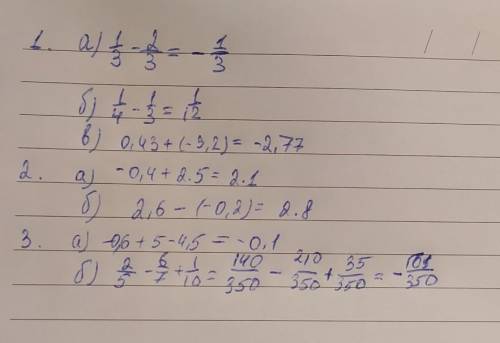 1. а) 1/3 - 2/3 = - 1/3
б) 1/4 - 1/3 = 1/12
в) 0,43 + (-3,2) = -2,77
2. а) -0,4 + 2.5 = 2.1
б) 2,6 - (-0,2) = 2.8
3. а) -0,6 + 5 - 4,5 = -0,1
б) 2/5 - 6/7 + 1/10 = 140/350 - 210/350 + 35/350 =